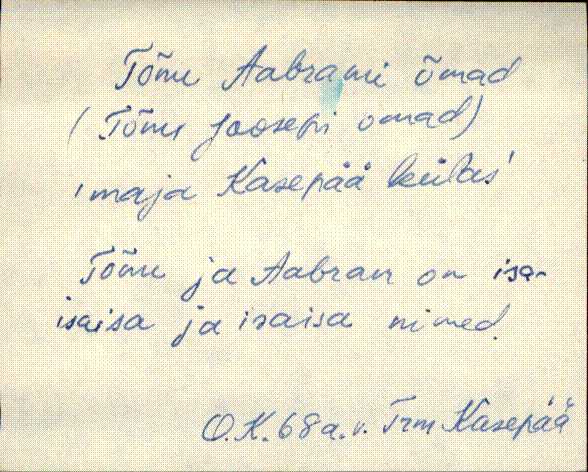 Tõnu Aabrami õmad
(Tõnu Joosepi omad)
maja Kasepää külas
Tõnu ja Aabram on isa-
isaisa ja isaisa nimed.
O.K. 68 a. v. Trm Kasepää